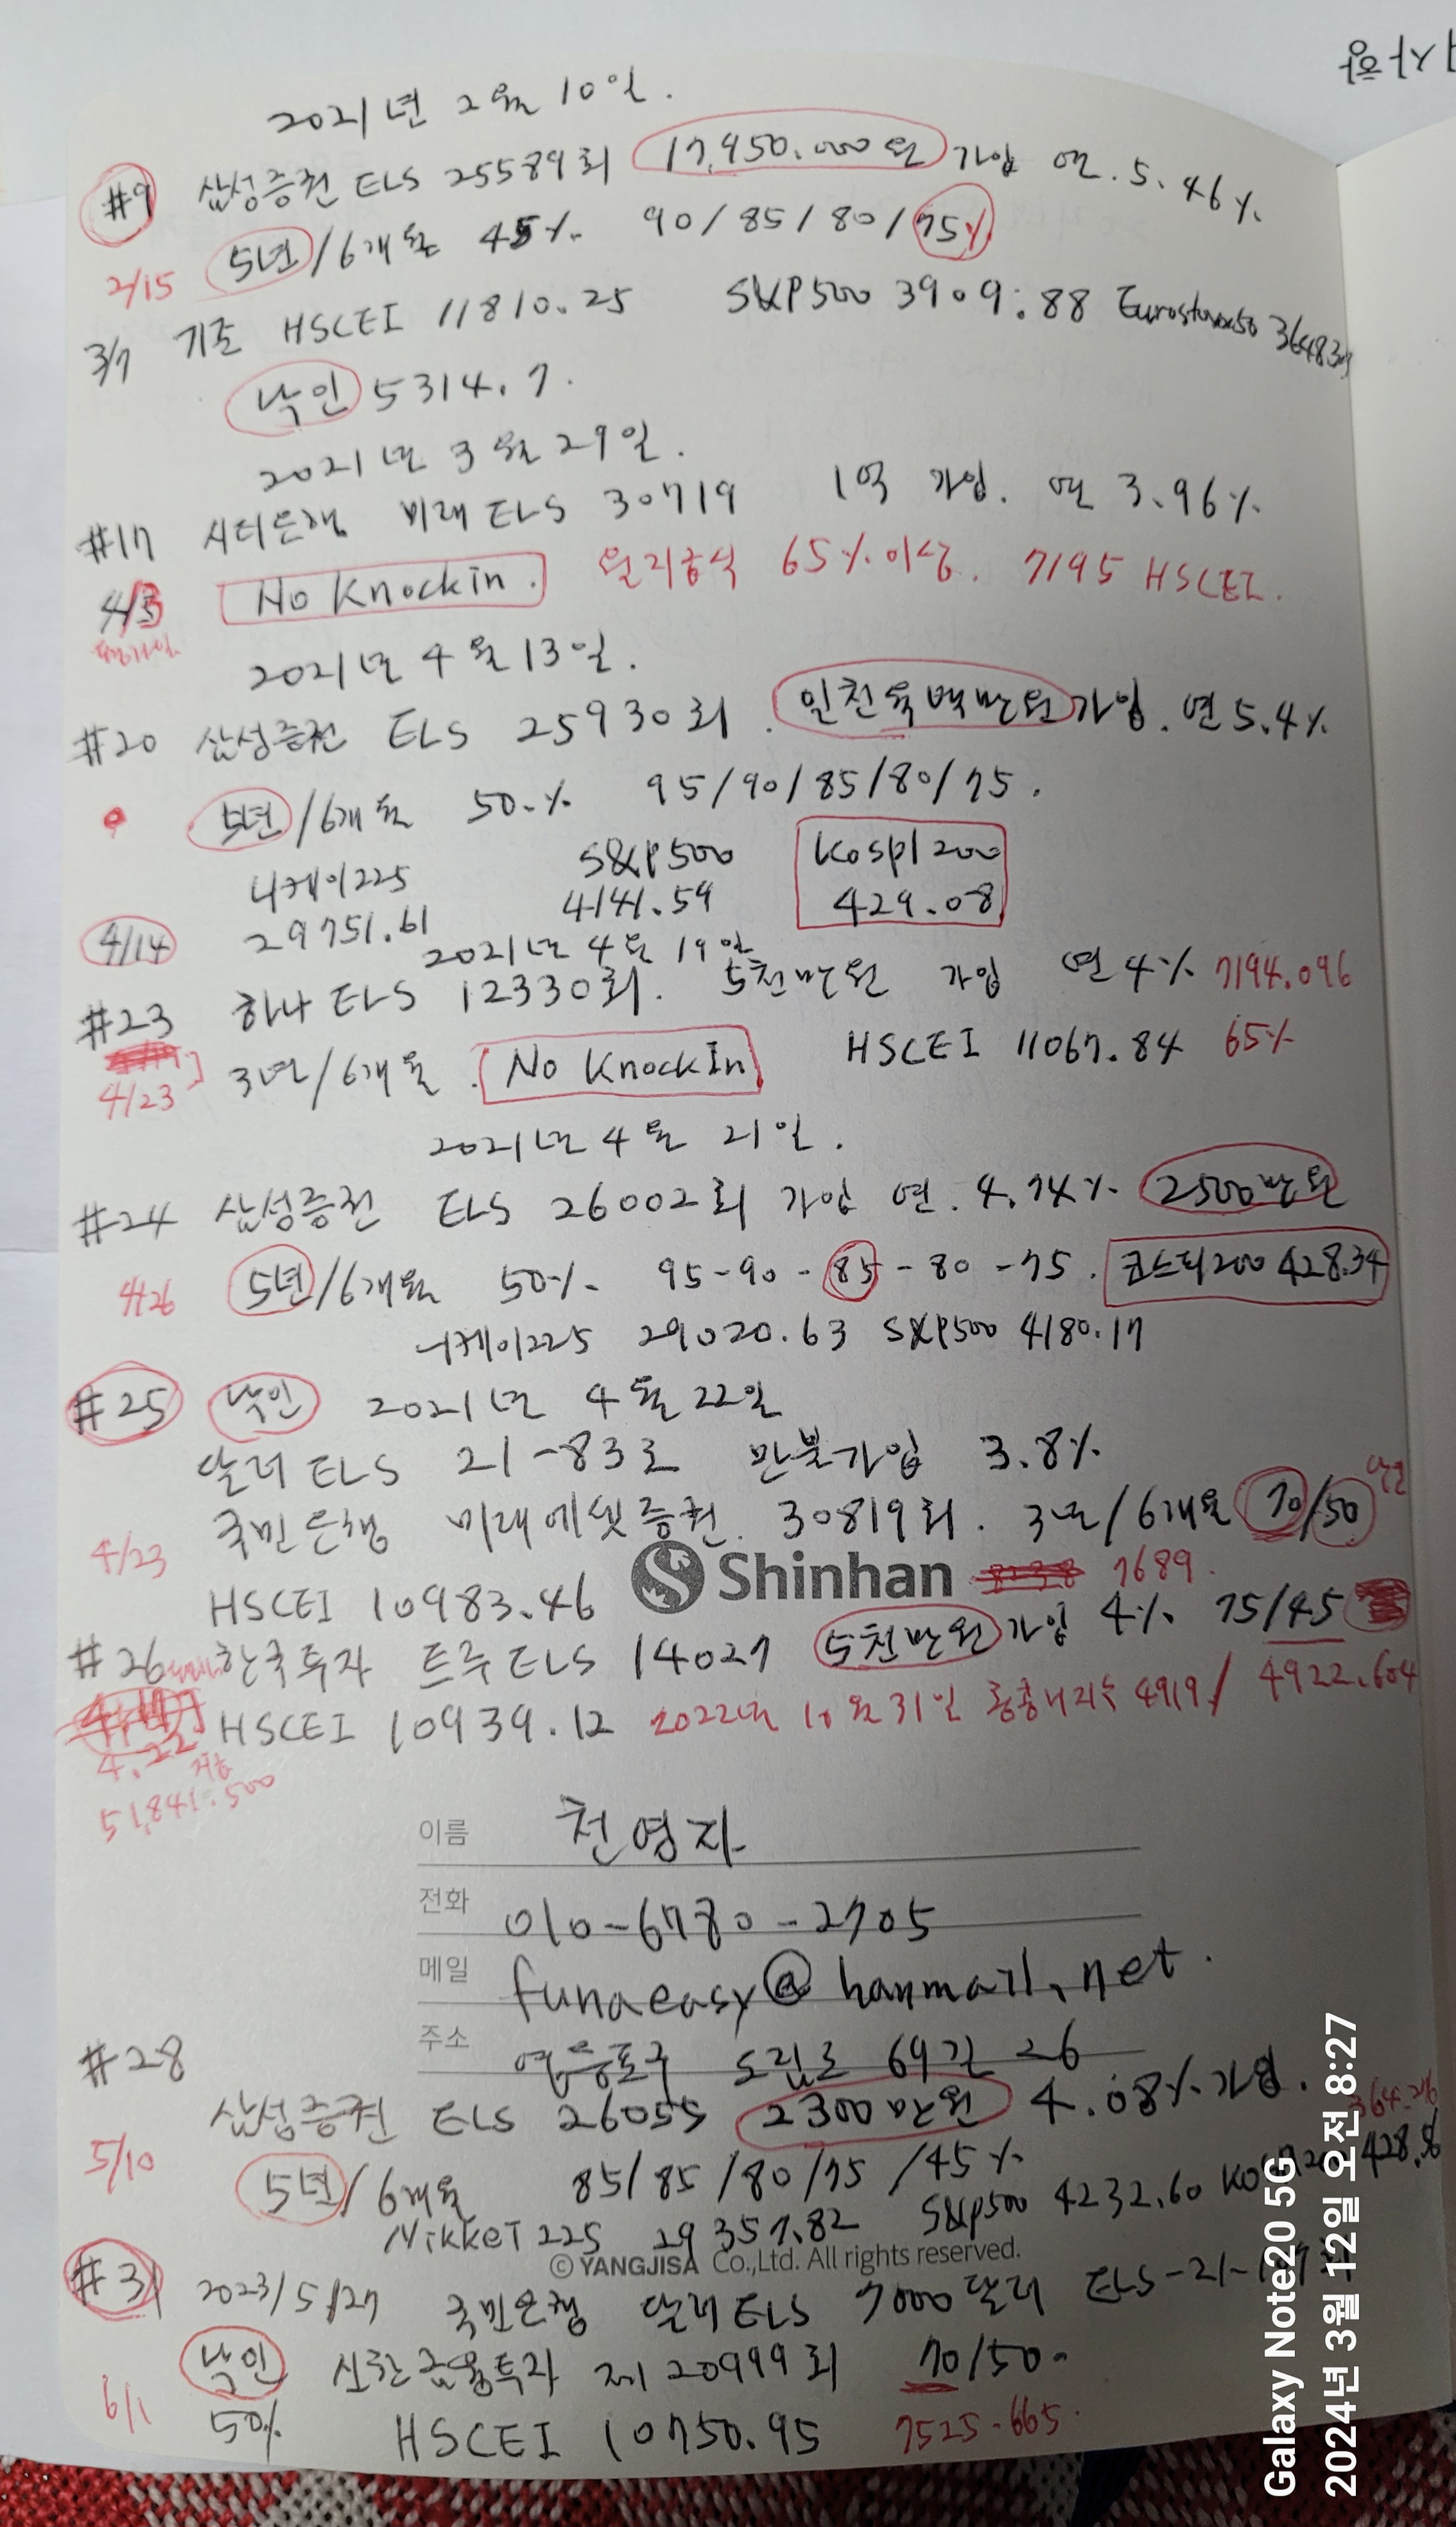 2021년 2월 10일.
#9 삼성증권 ELS 25589회 17,950.000원 가입 연. 5.46%
2/15 5년/6개월 45% 90/85/80/75%
3/7 기준 HSCEI 11810.25 S&P500 3909.88 Eurostoxx50
낙인 5314.7.
2021년 3월 29일.
#17 시티은행 미래 ELS 30719 1억 가입. 연 3.96%
4/5 No Knockin. 월지급식 65%이상. 7195 HSCEI.
2021년 4월 13일.
#20 삼성증권 ELS 25930회. 일천육백만원 가입. 연 5.4%
5년/6개월 50.% 95/90/85/80/75.
니케이225 S&P500 KOSPI200
4/14 29751.61 4141.59 429.08
2021년 4월 19일
#23 하나 ELS 12330회. 5천만원 가입 연 4% 7194.096
4/23 3년/6개월. No KnockIn HSCEI 11067.84 65%
2021년 4월 21일.
#24 삼성증권 ELS 26002회 가입 연. 4.74% 2500만원
4/26 5년/6개월 50% 95-90-85-80-75. 코스피200 428.34
니케이225 29020.63 S&P500 4180.17
#25 낙인 2021년 4월 22일
달러 ELS 21-83호 만불가입 3.8%
낙인
4/23 국민은행 미래에셋증권. 30819회. 3년/6개월 70/50
Shinhan
HSCEI 10983.46 7689.
#26 한국투자 트루 ELS 14027 5천만원 가입 4% 75/45
4.22 HSCEI 10939.12 2022년 10월 31일 홍콩H지수 4919/ 4922.604
51,841.500
이름 천영자
전화 010-6780-2705
메일 funaeasy@hanmail.net.
주소 영등포구 도림로 69길 26
#28
삼성증권 ELS 26055 2300만원 4.08% 가입.
5/10 5년/6개월 85/85/80/75/45%
Nikkei 225 29357.82 S&P500 4232.60
© YANGJISA Co.,Ltd. All rights reserved.
#31 2023/5/27 국민은행 달러 ELS 7000달러
낙인 신한금융투자 제20999회 70/50.
6/1 50% HSCEI 10750.95 7525.665.
Galaxy Note20 5G
2024년 3월 12일 오전 8:27